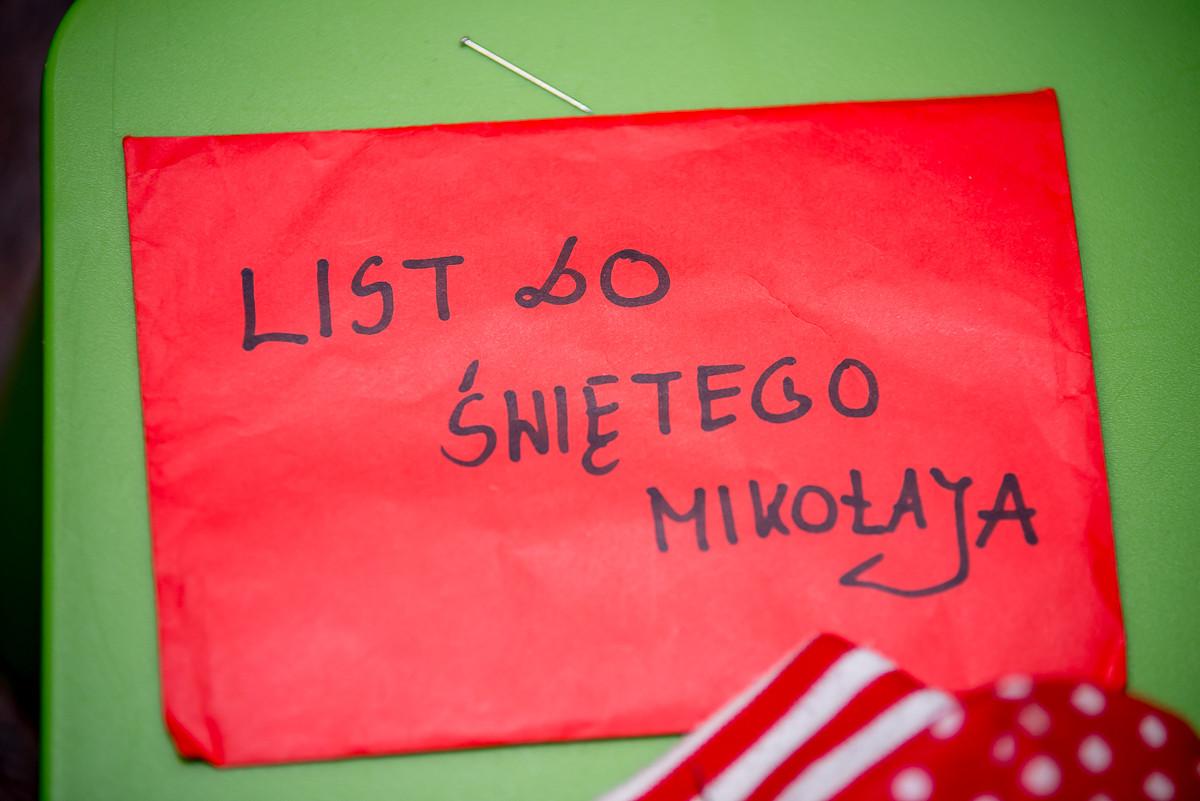 LIST DO
ŚWIĘTEGO
MIKOŁAJA